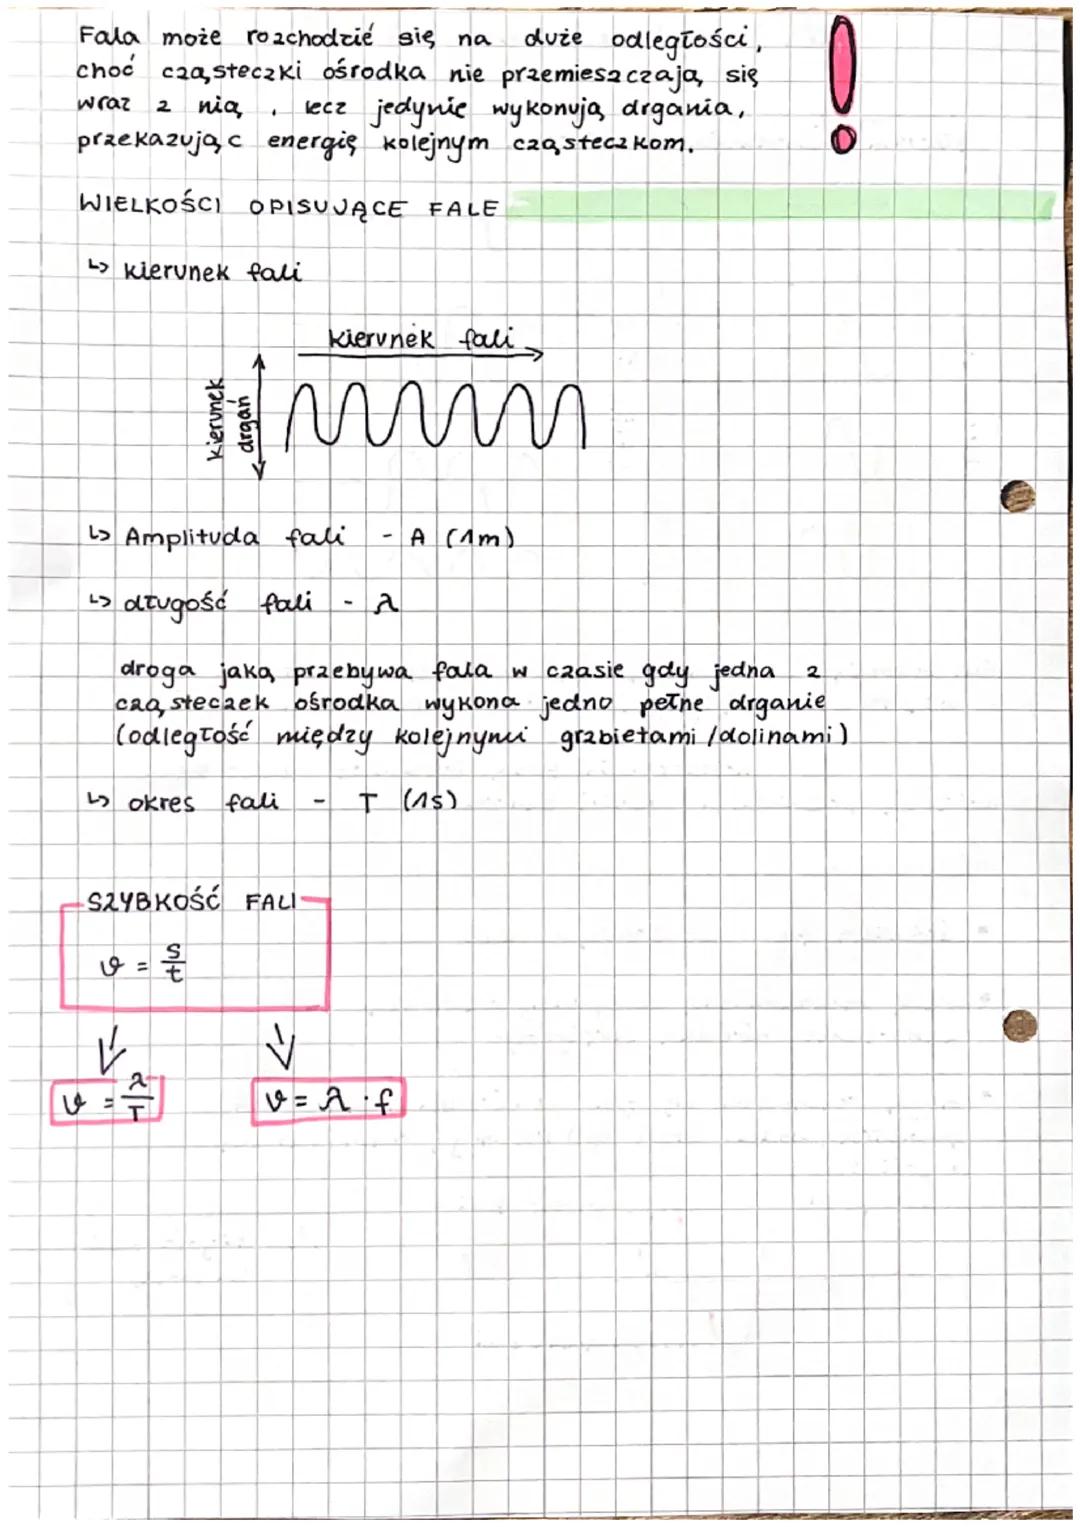 Fala może rozchodzić się na duże odległości,
choć cząsteczki ośrodka nie przemieszczają się
wraz z nią, lecz jedynie wykonują drgania,
przekazując energię kolejnym cząsteczkom.
WIELKOŚCI OPISUJĄCE FALE
↳ kierunek fali
kierunek fali
kierunek
drgań
↳ Amplituda fali - A (1m)
↳ długość fali - λ
droga jaką przebywa fala w czasie gdy jedna z
cząsteczek ośrodka wykona jedno pełne drganie
(odległość między kolejnymi grzbietami / dolinami)
↳ okres fali - T (1s)
SZYBKOŚĆ FALI
v = s/t
v = λ/T
v = λ · f